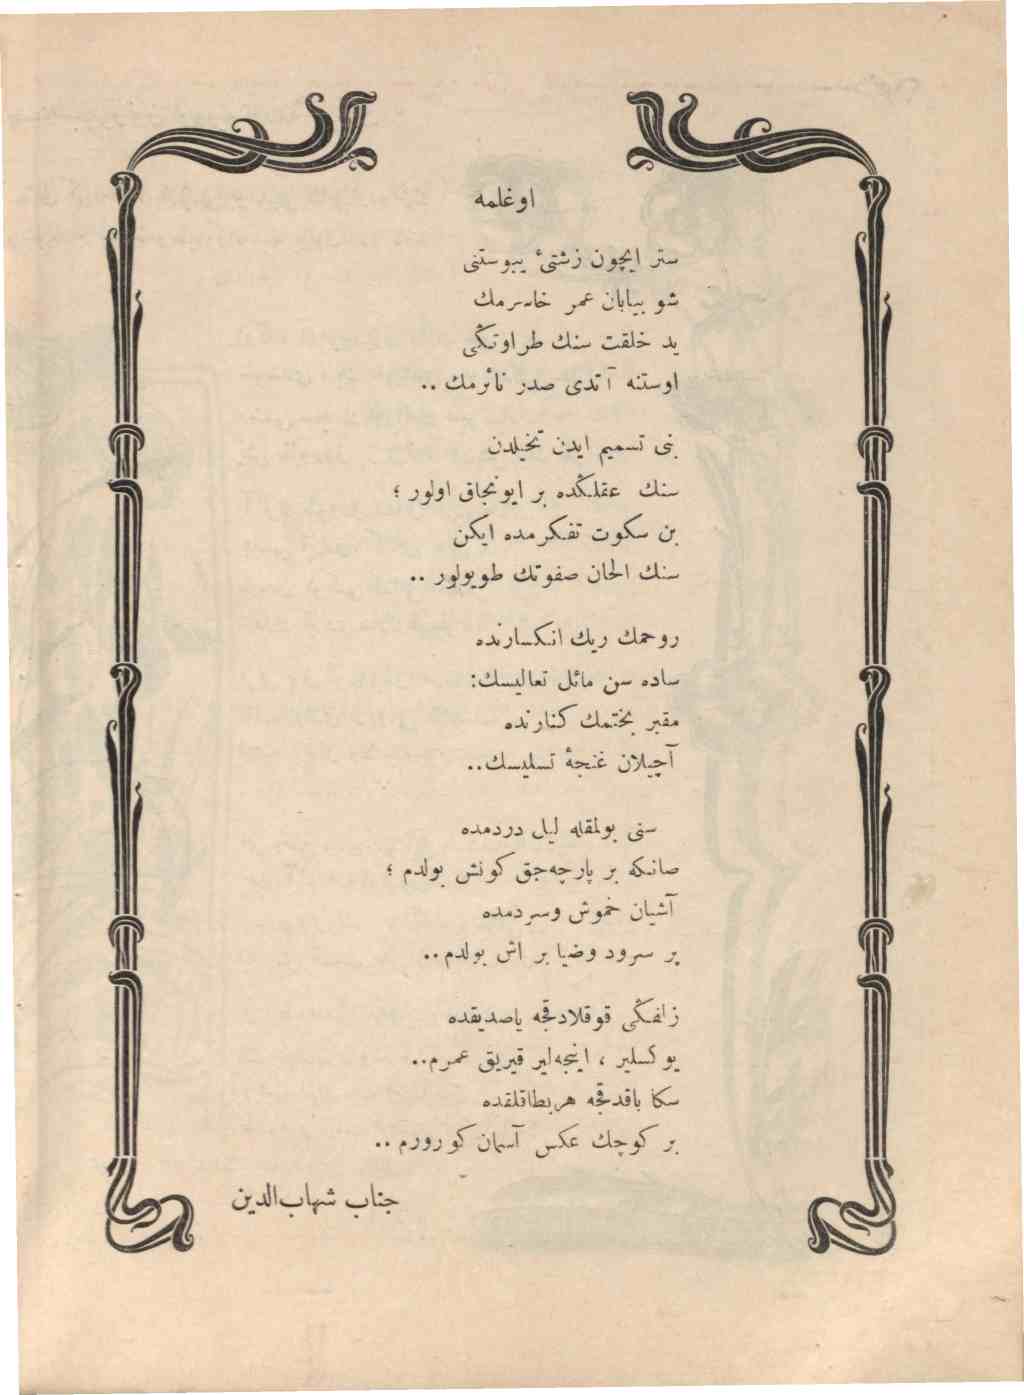 اوغلمه
ستر ايچون زشتیٔ يبوستنی
شو بيابان عمر خاسرمك
يد خلقت سنك طراوتڭی
اوستنه آتدی صدر نائرمك ..
بنی تسميم ايدن تخيلدن
سنك عقلڭده بر ايونجاق اولور ؛
بن سكوت تفكرمده ايكن
سنك الحان صفوتك طويولور ..
روحمك ريك انكسارنده
ساده سن مائل تعاليسك:
مقبر بختمك كنارنده
آچيلان غنجهٔ تسليسك..
سنی بولمقله ليل دردمده
صانكه بر پارچه‌جق كونش بولدم ؛
آشيان خموش وسردمده
پر سرود وضيا بر اش بولدم..
زلفڭی قوقلادقجه ياصديقده
يوكسلير ، اينجه‌لير قيريق عمرم..
سكا باقدقجه هربطاقلقده
بر كوچك عكس آسمان كورورم ..
جناب شهاب‌الدين